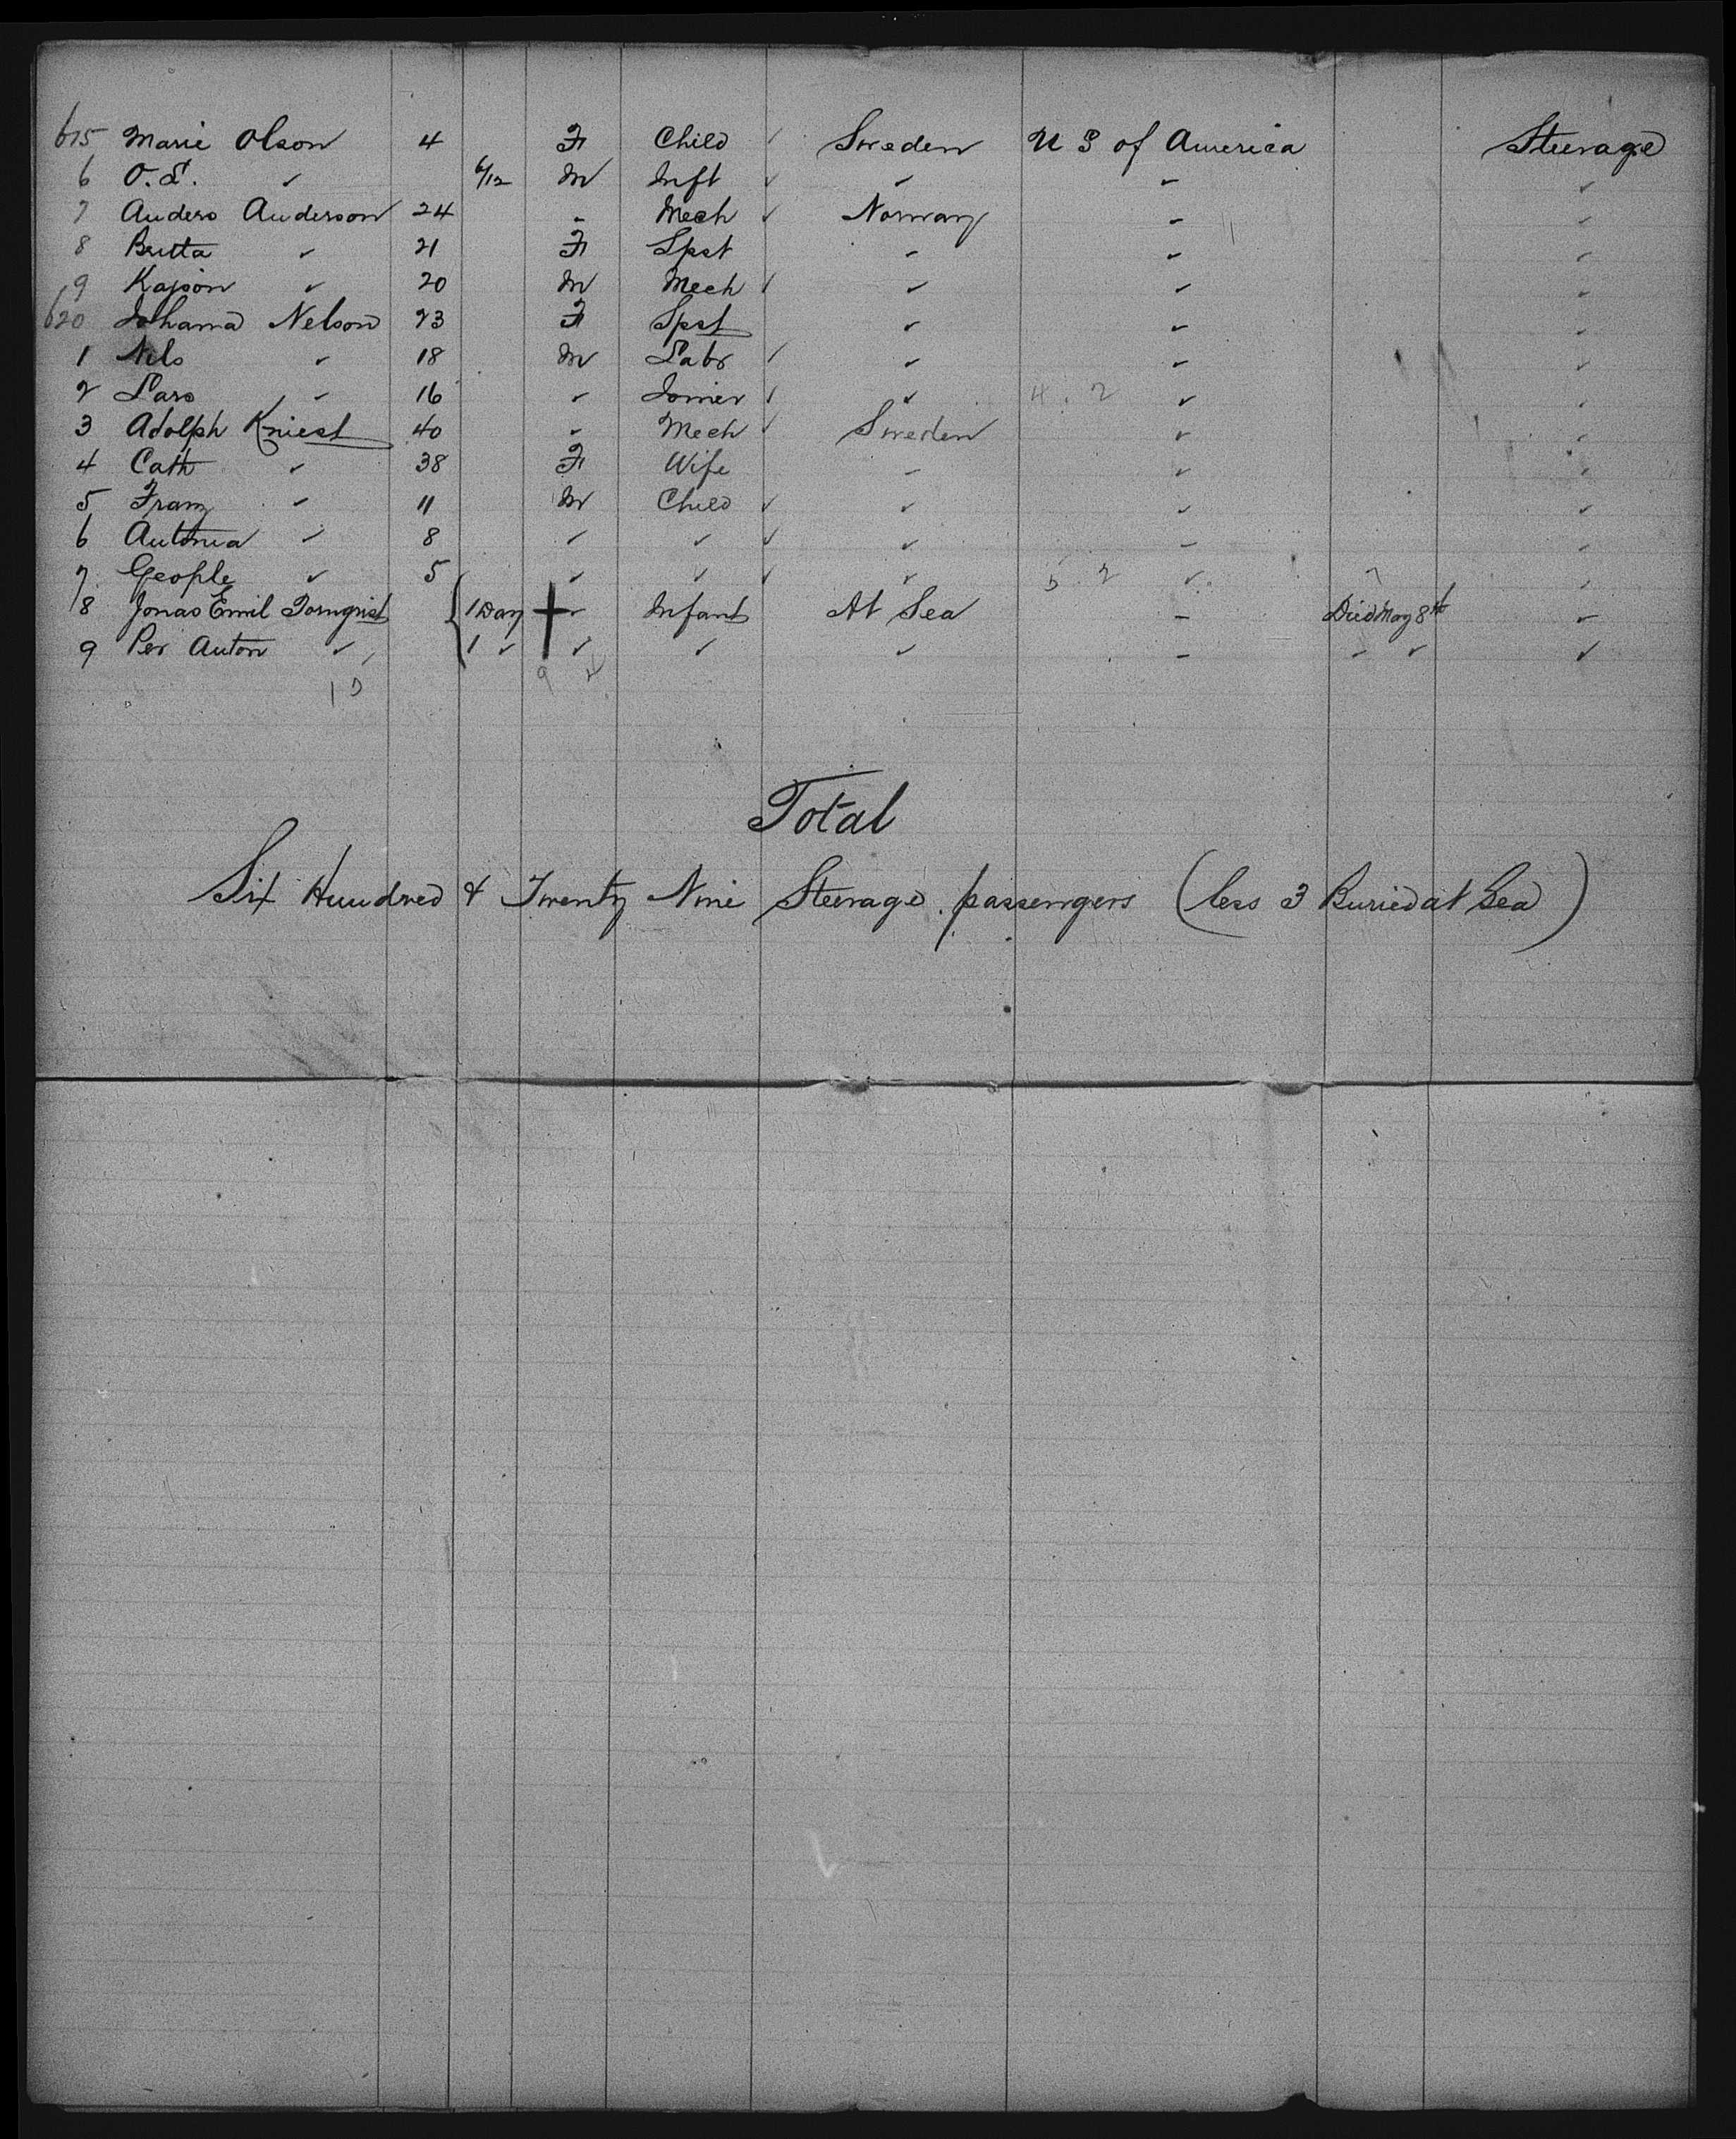 615 Marie Olson 4 F Child ✓ Sweden U S of America Steerage
6 O. L. ✓ 6/12 M Inft ✓ ✓ ✓ ✓
7 Anders Anderson 24 - Mech ✓ Norway - -
8 Britta ✓ 21 F Spst - ✓ -
9 Kajson ✓ 20 M Mech ✓ ✓ ✓ -
620 Johanna Nelson 23 F Spst ✓ ✓ ✓
1 Nels ✓ 18 M Labr ✓ ✓ ✓ ✓
2 Lars ✓ 16 ✓ Joiner ✓ ✓ 4. 2 ✓ ✓
3 Adolph Kniest 40 - Mech ✓ Sweden ✓ ✓
4 Cath ✓ 38 F Wife - ✓ ✓
5 Franz ✓ 11 M Child ✓ ✓ ✓ ✓
6 Antonia ✓ 8 ✓ ✓ ✓ ✓ - -
7 ✓ 5 ✓ ✓ ✓ ✓ 2 ✓ -
8 Jonas Emil Tornqvist { 1 Day + ✓ Infant At Sea - Died May 8th -
9 Per Anton ✓ 1 ✓ ✓ ✓ ✓ - - ✓ ✓
Total
Six Hundred & Twenty Nine Steerage passengers (less 3 Buried at Sea)